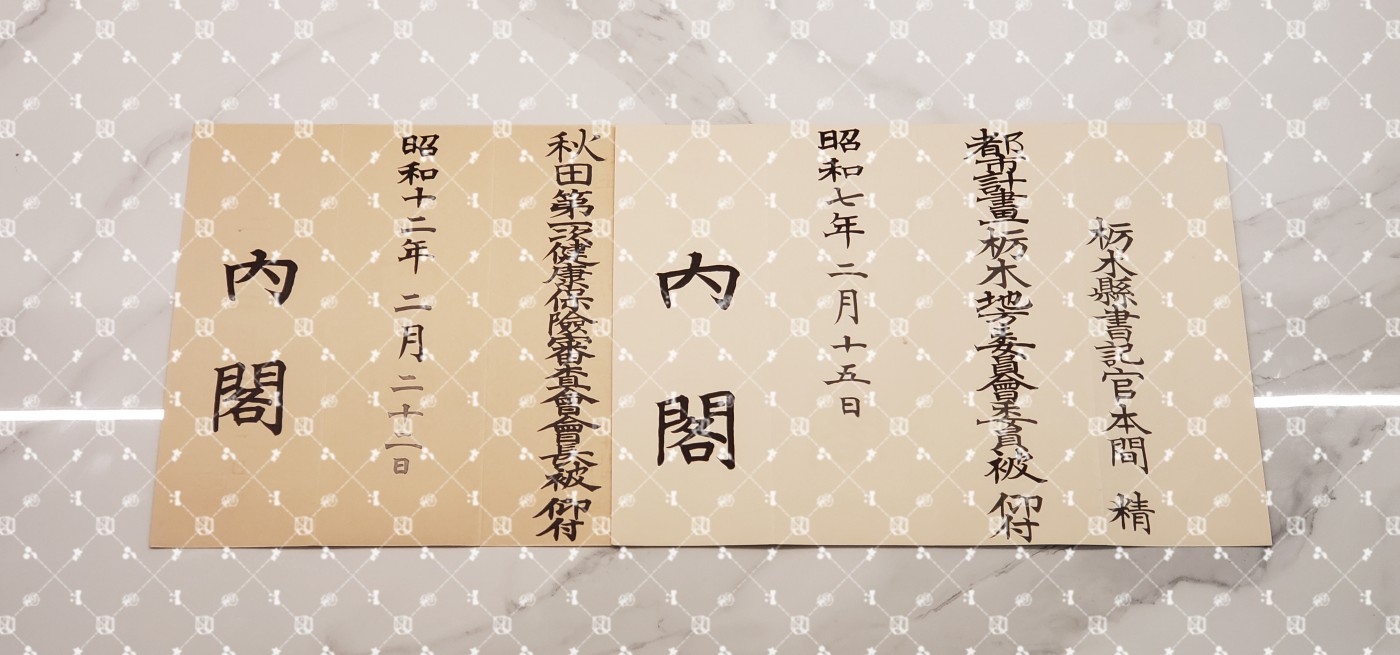 栃木縣書記官本間 精
都市計畫栃木地方委員會委員被 仰付
昭和七年二月十五日
内閣
秋田第一次健康保險審査會會長被 仰付
昭和十二年 二月 二十二日
内閣